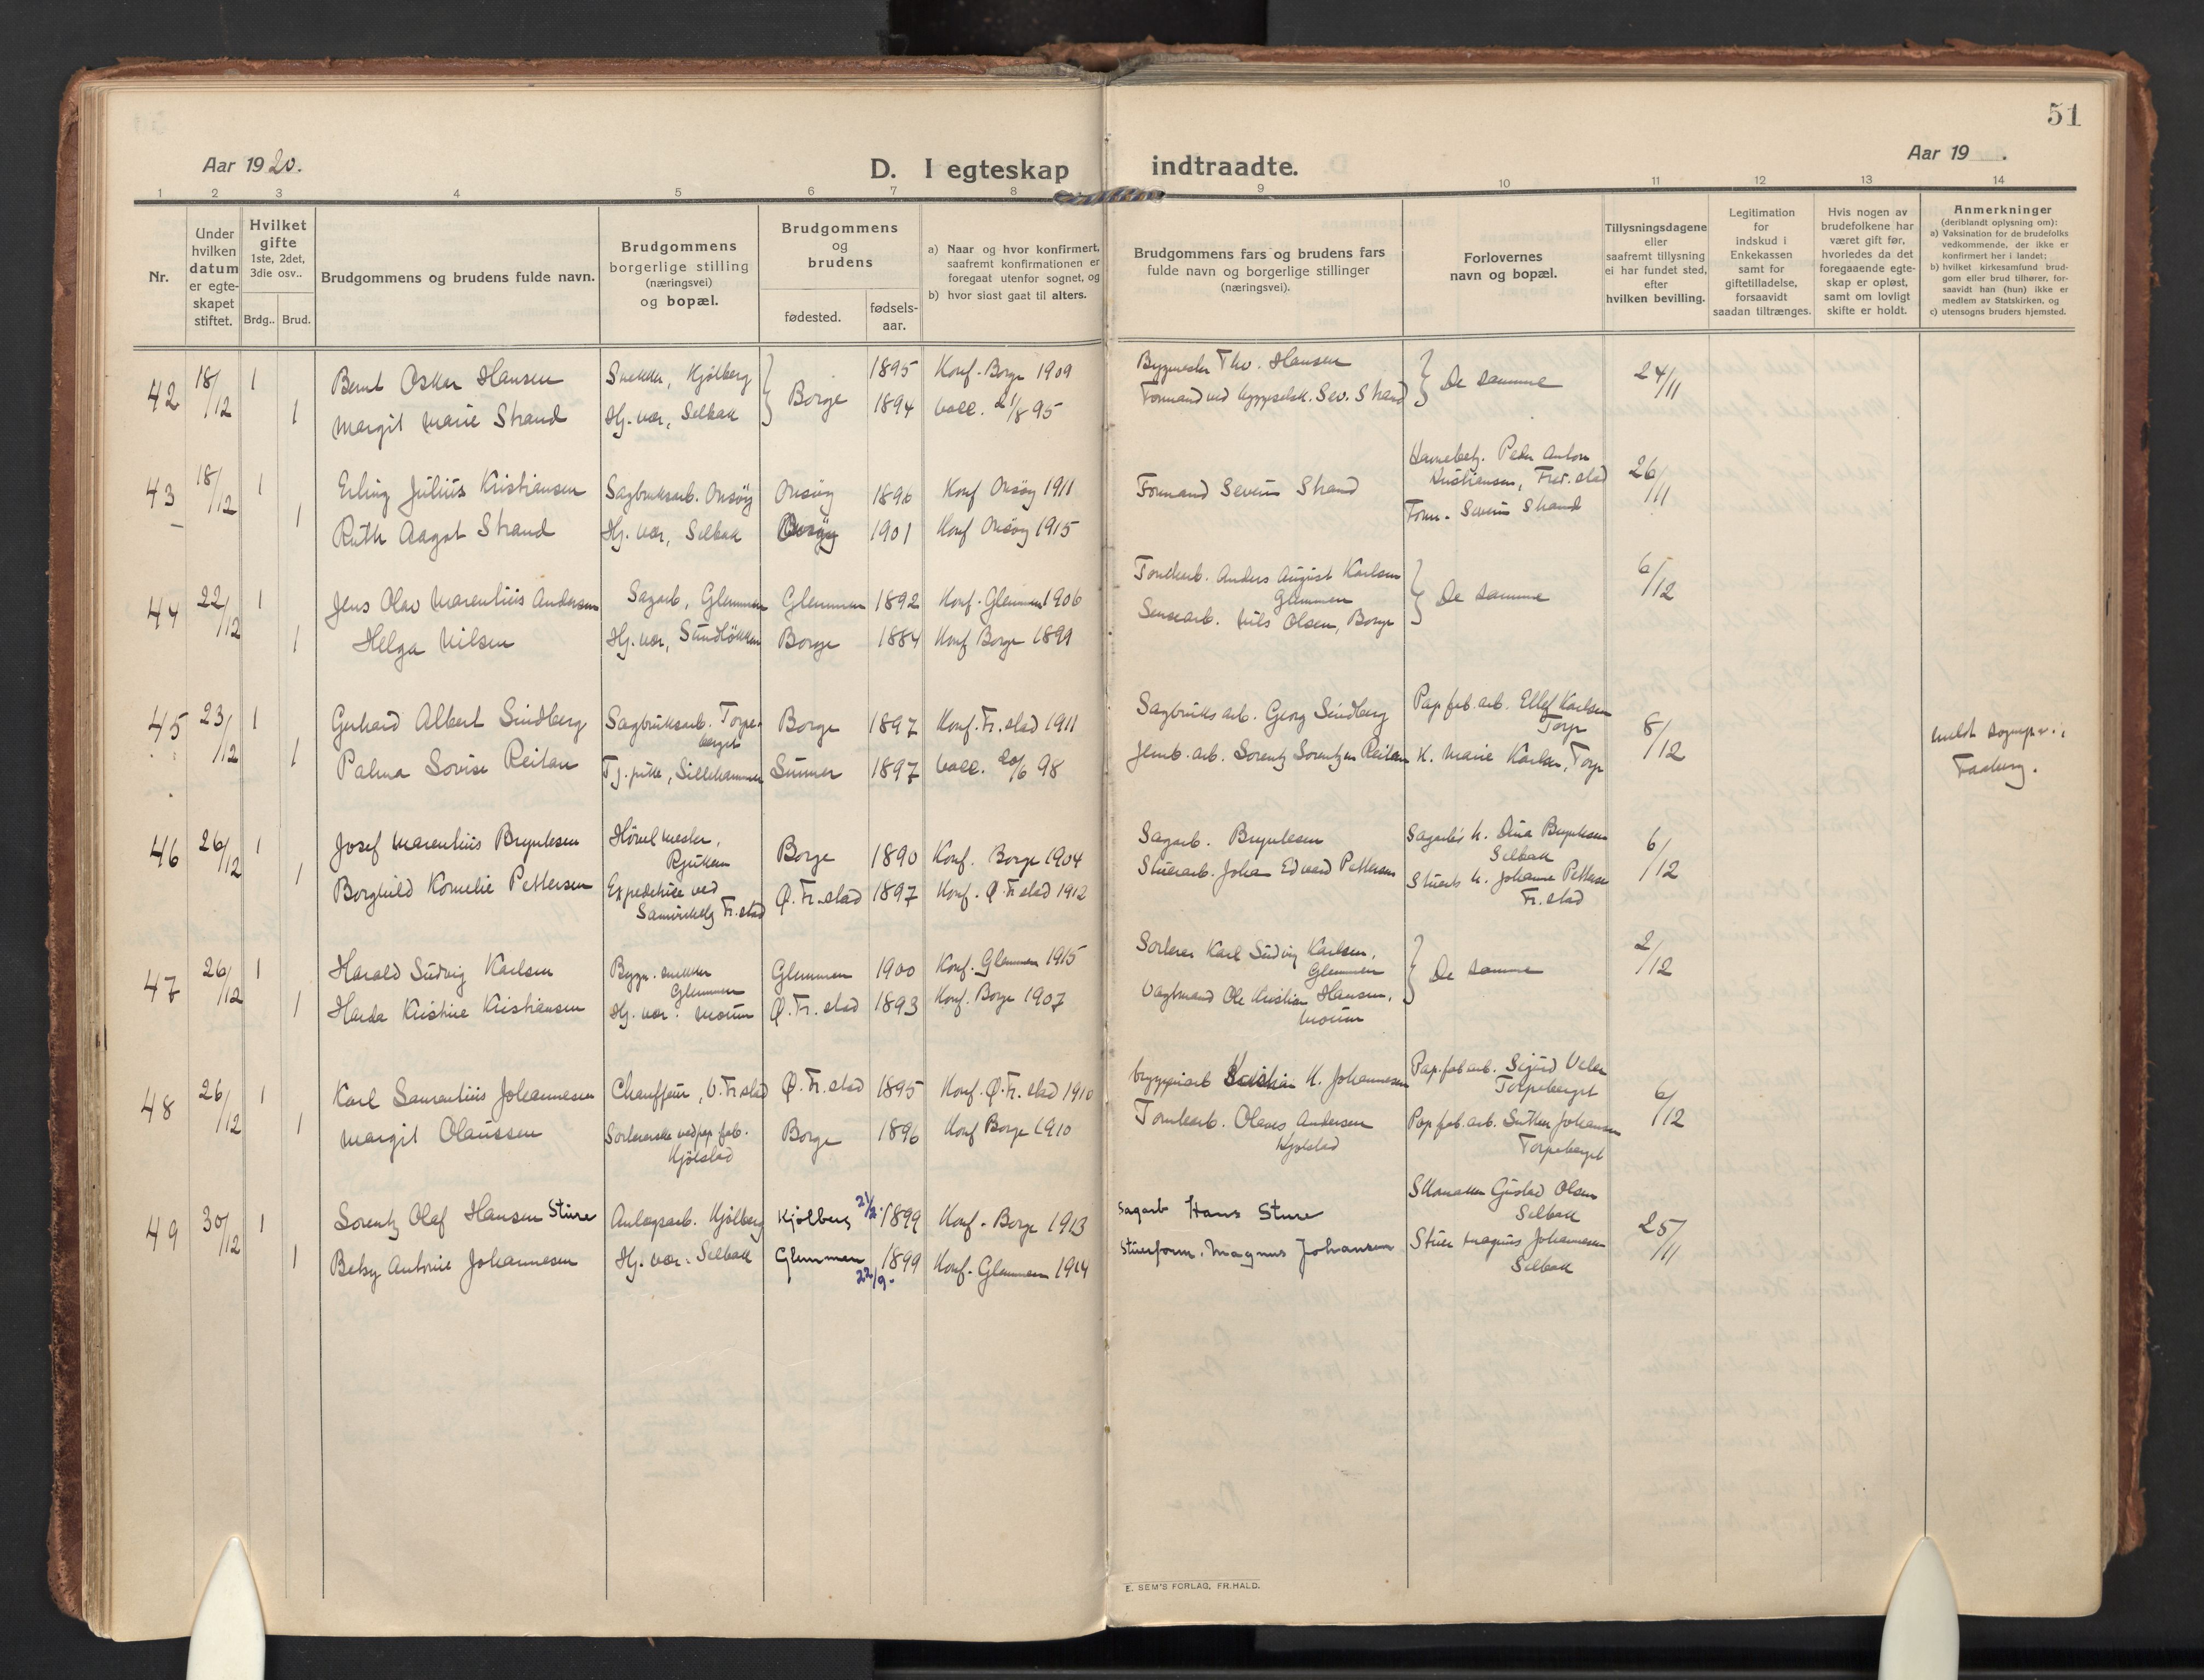 51
Aar 1920.
D. I egteskap indtraadte.
Aar 19 .
1 2 3 4 5 6 7 8 9 10 11 12 13 14
Nr.
Under hvilken datum er egteskapet stiftet.
Hvilket gifte 1ste, 2det, 3die osv..
Brdg.. Brud.
Brudgommens og brudens fulde navn.
Brudgommens borgerlige stilling (næringsvei) og bopæl.
Brudgommens og brudens
fødested.
fødsels-aar.
a) Naar og hvor konfirmert, saafremt konfirmationen er foregaat utenfor sognet, og
b) hvor sidst gaat til alters.
Brudgommens fars og brudens fars fulde navn og borgerlige stillinger (næringsvei).
Forlovernes navn og bopæl.
Tillysningsdagene eller saafremt tillysning ei har fundet sted, efter hvilken bevilling.
Legitimation for indskud i Enkekassen samt for giftetilladelse, forsaavidt saadan tiltrænges.
Hvis nogen av brudefolkene har været gift før, hvorledes da det foregaaende egteskap er opløst, samt om lovligt skifte er holdt.
Anmerkninger (deriblandt oplysning om):
a) Vaksination for de brudefolks vedkommende, der ikke er konfirmert her i landet;
b) hvilket kirkesamfund brudgom eller brud tilhører, forsaavidt han (hun) ikke er medlem av Statskirken, og
c) utensogns bruders hjemsted.
42 18/12 1 Bernt Oskar Hansen Snekker, Kjølberg } Borge 1895 Konf. Borge 1909 Bygmester Thv. Hansen } De samme 24/11
1 Margit Marie Strand Hj. vær, Selbak 1894 vacc. 21/8 95 Formand ved byggselsk. Sev. Strand
43 18/12 1 Erling Julius Kristiansen Sagbruksarb. Onsøy Onsøy 1896 Konf Onsøy 1911 Havnebetj. Peder Anton Kristiansen, Fred.stad 26/11
1 Ruth Aagot Strand Hj. vær, Selbak Onsøy 1901 Konf Onsøy 1915 Formand Severin Strand Form. Severin Strand
44 22/12 1 Jens Olav Marentius Andersen Sagarb, Glemmen Glemmen 1892 Konf. Glemmen 1906 Tomtearb. Anders August Karlsen Glemmen } De samme 6/12
1 Helga Nilsen Hj. vær, Sundløkken Borge 1884 Konf Borge 1899 Nils Olsen, Borge
45 23/12 1 Gerhard Albert Lindberg Sagbruksarb. Torpeberget Borge 1897 Konf. Fr.stad 1911 Sagbruksarb. Georg Lindberg Papfab.arb. Ellef Karlsen Torp 8/12
1 Palma Lovise Reitan Tj. pike, Lillehammer 1897 vacc. 20/6 98 Jernb.arb. Lorentz Lorentzen Reitan K. Marie Karlsen, Torp Meldt sognepr. i Faaberg.
46 26/12 1 Josef Marentius Bryntesen Høvelmester, Rjukan Borge 1890 Konf. Borge 1904 Sagarb. Bryntesen Sagarb's k. Dina Bryntesen Selbak 6/12
1 Borghild Kornelie Pettersen Expeditrise ved Samvirkelag Fr.stad Ø. Fr.stad 1897 Konf. Ø Fr stad 1912 Stuerarb. Johan Edvard Pettersen Stuerarbs k. Johanne Pettersen Fr.stad
47 26/12 1 Harald Ludvig Karlsen Bygn. snekker Glemmen Glemmen 1900 Konf. Glemmen 1915 Sorterer Karl Ludvig Karlsen, Glemmen } De samme 2/12
1 Harda Kristine Kristiansen Hj. vær. Moum Ø. Fr. stad 1893 Konf. Borge 1907 Vagtmand Ole Kristian Hansen, Moum
48 26/12 1 Karl Laurentius Johannesen Chauffeur, V. Fr.stad Ø. Fr. stad 1895 Konf. Ø. Fr. stad 1910 Bryggeriarb Kristian K. Johannesen Pap.fab.arb. Sigurd Torpeberget 6/12
1 Margit Olaussen Sortererske ved pap. fab. Kjølstad Borge 1896 Konf Borge 1910 Tomtearb. Olaves Andersen Kjølstad Papfab.arb. Luther Johansen Torpeberget
49 30/12 1 Lorentz Olaf Hansen Sture Anlægsarb. Kjølberg Kjølberg 21/2. 1899 Konf. Borge 1913 Sagarb Hans Sture Skomaker Gustav Olsen Selbak 25/11
1 Betsy Antonie Johannesen Hj. vær. Selbak Glemmen 22/9. 1899 Konf. Glemmen 1914 Stuerform. Magnus Johansen Stuer Magnus Johannesen Selbak
E. SEM'S FORLAG, FR.HALD.